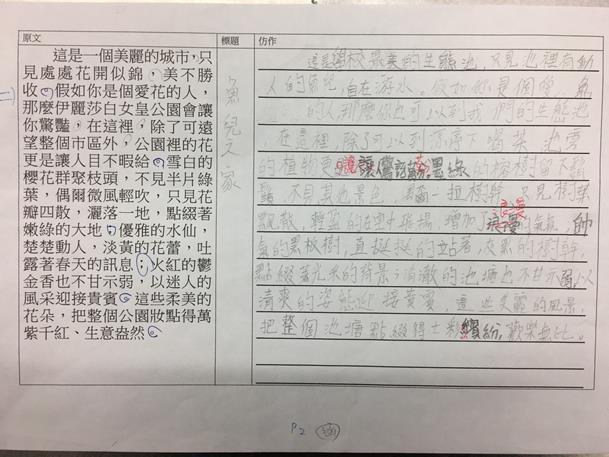 原文
標題
仿作
這是一個美麗的城市,只
見處處花開似錦,美不勝
收。假如你是個愛花的人,
那麼伊麗莎白女皇公園會讓
你驚豔,在這裡,除了可遠
望整個市區外,公園裡的花
更是讓人目不暇給。雪白的
櫻花群聚枝頭,不見半片綠
葉,偶爾微風輕吹,只見花
瓣四散,灑落一地,點綴著
嫩綠的大地。優雅的水仙,
楚楚動人,淡黃的花蕾,吐
露著春天的訊息;火紅的鬱
金香也不甘示弱,以迷人的
風采迎接貴賓。這些柔美的
花朵,把整個公園妝點得萬
紫千紅、生意盎然。
魚兒之家
這是學校最美的生態池,只見池裡有動
人的魚兒,自在游水。假如你是個愛
的人,那麼你也可以到我們的生態池
在這裡,除了可以到涼亭下喝茶
的植物更讓 墨綠的榕樹留
不見其他景色,只見樹葉
飄散,輕盈的在空中飛揚,增加了浪漫的氣氛,帥
氣的黑板樹,直挺挺的站著,的樹幹,
點綴著的背景;清澈的池塘也不甘示弱,以
清爽的姿態迎接貴賓,這些美麗的風景,
把整個池塘點綴得七彩繽紛,歡樂無比。
P2